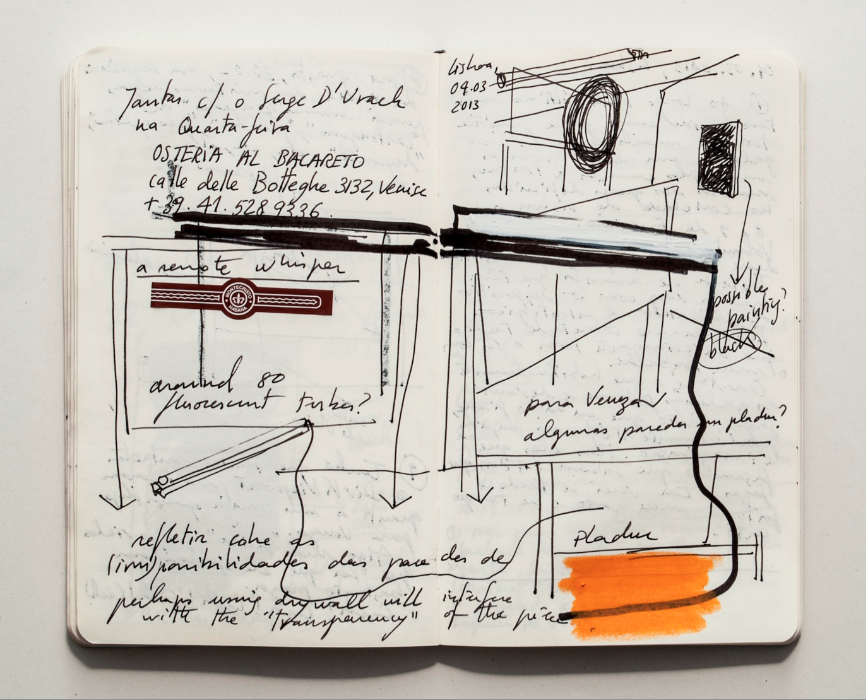 Jantar c/ o Serge D'Urach
na Quarta-feira
OSTERIA AL BACARETO
calle delle Botteghe 3132, Venise
+39.41.528 9336
a remote whisper
MONTECRISTO
HABANA
around 80
fluorescent tubes?
refletir sobre as
(im)possibilidades das paredes de
perhaps using drywall will interfere
with the "transparency" of the piece
Lisboa,
09.03
2013
possible
painting?
black
para Veneza
algumas paredes em pladur?
Pladur